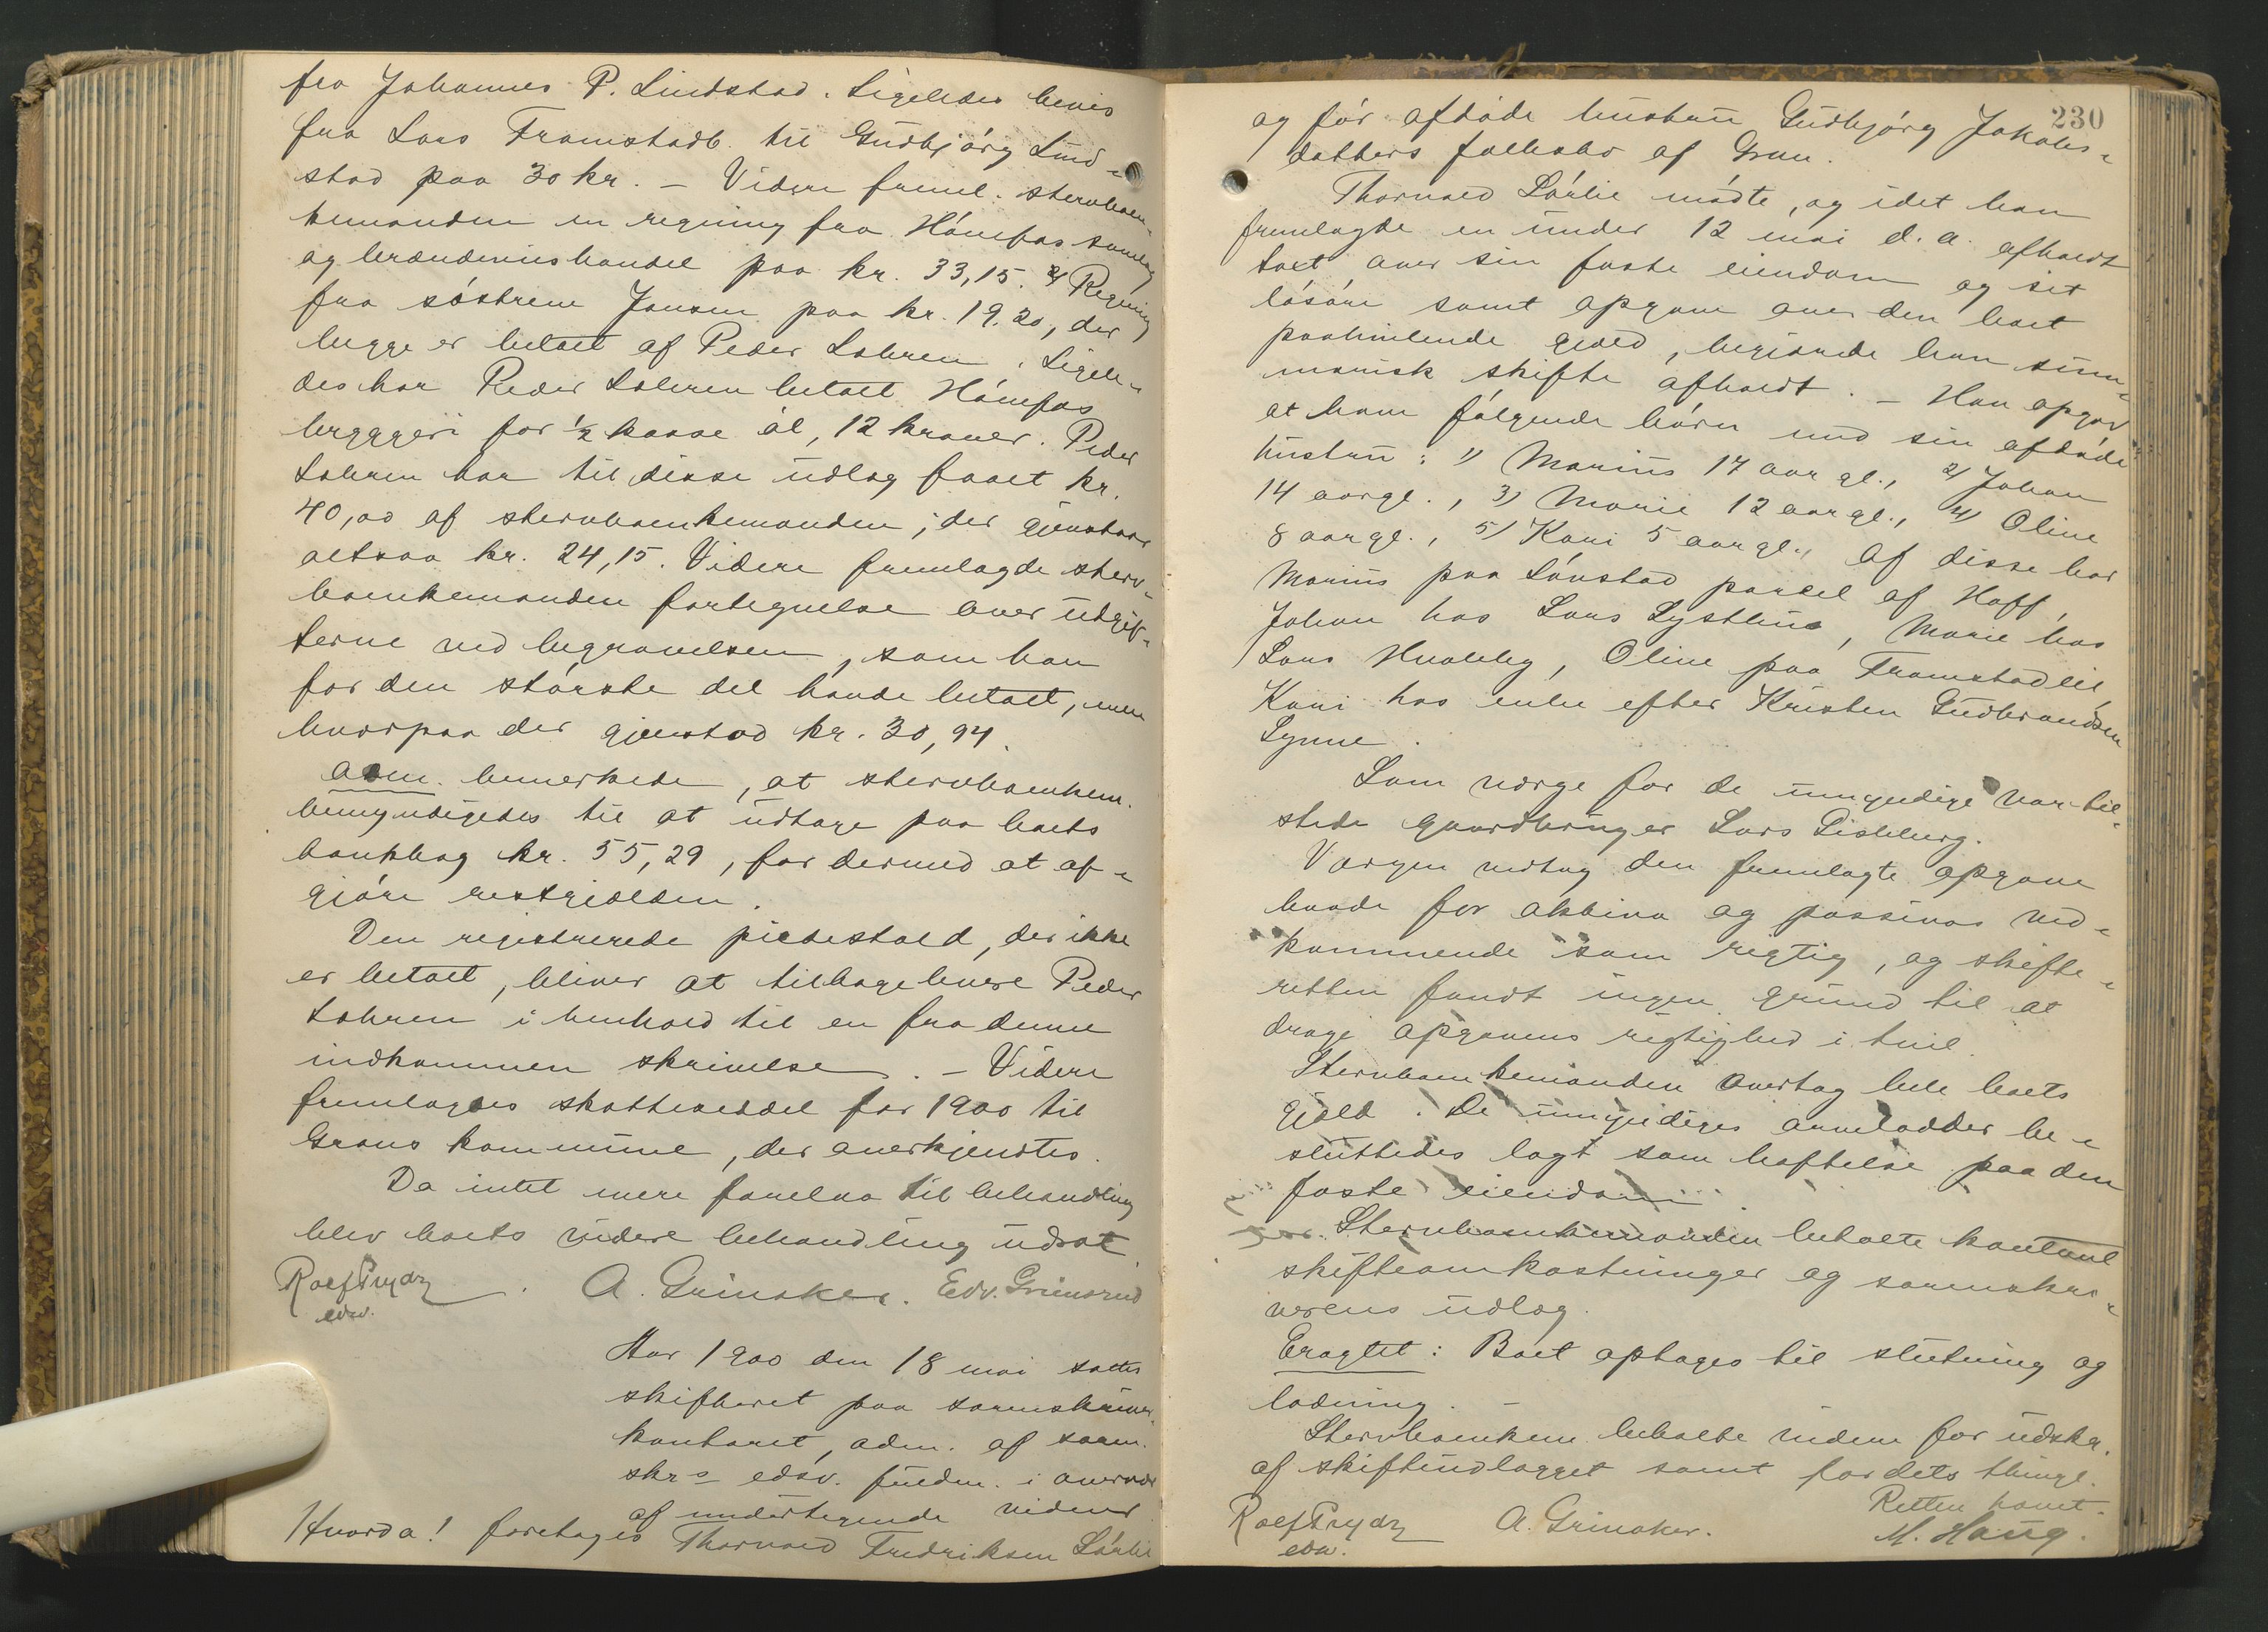 fra Johannes P. Lindstad. Ligeledes bevis
fra Lars Framstadb. til Gudbjørg Lind-
stad paa 30 kr. – Videre freml. stervboen-
kemanden en regning fra Hønefos samlag
og brændevinshandel paa kr. 33,15. Regning
fra søstrene Jensen paa kr. 19.20, der
begge er betalt af Peder Løken. Ligele-
des har Peder Løken betalt Hønefos
bryggeri for ½ kasse øl, 12 kroner. Peder
har til disse udlæg faaet kr.
40,00 af stervboenkemanden; der gjenstaar
altsaa kr. 24,15. Videre fremlagde sterv-
boenkemanden fortegnelse over udgif-
terne ved begravelsen, som han
for den største del havde betalt, men
hvorpaa der gjenstod kr. 30,94.
adm. bemerkede, at stervboenkem.
bemyndigedes til at udtage paa boets
bankbog kr. 55,29, for dermed at af-
gjøre restgjælden.
Den registrerede piedestald, der ikke
er betalt, bliver at tilbagelevere Peder
i henhold til en fra denne
indkommen skrivelse. – Videre
fremlagdes skatteseddel for 1900 til
Grans kommune, der anerkjendtes.
Da intet mere forelaa til behandling
blev boets videre behandling udsat
Rolf Prydz A. Grinaker. Edv. Grinsrud
edsv.
Aar 1900 den 18 mai sattes
skifteret paa sorenskriver-
kontoret, adm. af soren-
skrs edsv. fuldm. i overvær
af undertegnede vidner
Hvorda! foretages Thorvald Fredriksen Lørlie
230
og før afdøde hustru Gudbjørg Jakobs-
datters fællesbo af Gran.
Thorvald Lørlie mødte, og idet han
fremlagde en under 12 mai d. a. afholdt
taxt over sin faste eiendom og sit
løsøre samt opgave over den boet
paahvilende gjæld, begjærede han sum-
marisk skifte afholdt. – Han opgav
at have følgende børn med sin afdøde
hustru: 1) Marius 17 aar gl., 2) Johan
14 aar gl., 3) Marie 12 aar gl., 4) Oline
8 aar gl., 5) Kari 5 aar gl., af disse bor
Marius paa Lønstad parcel af Hoff,
Johan hos Lars Lysthus, Marie hos
Lars Hvaleby, Oline paa Framstadlie,
Kari hos enke efter Kristen Gudbrandsen
Lynne.
Som værge for de umyndige var til-
stede gaardbruger Lars Dishburg.
Værgen vedtog den fremlagte opgave
baade for aktiva og passivas ved-
kommende som rigtig, og skifte-
retten fandt ingen grund til at
drage opgavens rigtighed i tvil.
Stervboenkemanden overtog hele boets
gjæld. De umyndiges arvelodder be-
sluttedes lagt som heftelse paa den
faste eiendom.
Stervboenkemanden betalte kontant
skifteomkostninger og sorenskri-
verens udlæg.
Eragtet: Boet optages til slutning og
lodning. –
Stervboenkem. betalte videre for udskr.
af skifteudlægget samt for dets thingl.
Retten hævet.
Rolf Prydz A. Grinaker. M. Haug.
edsv.